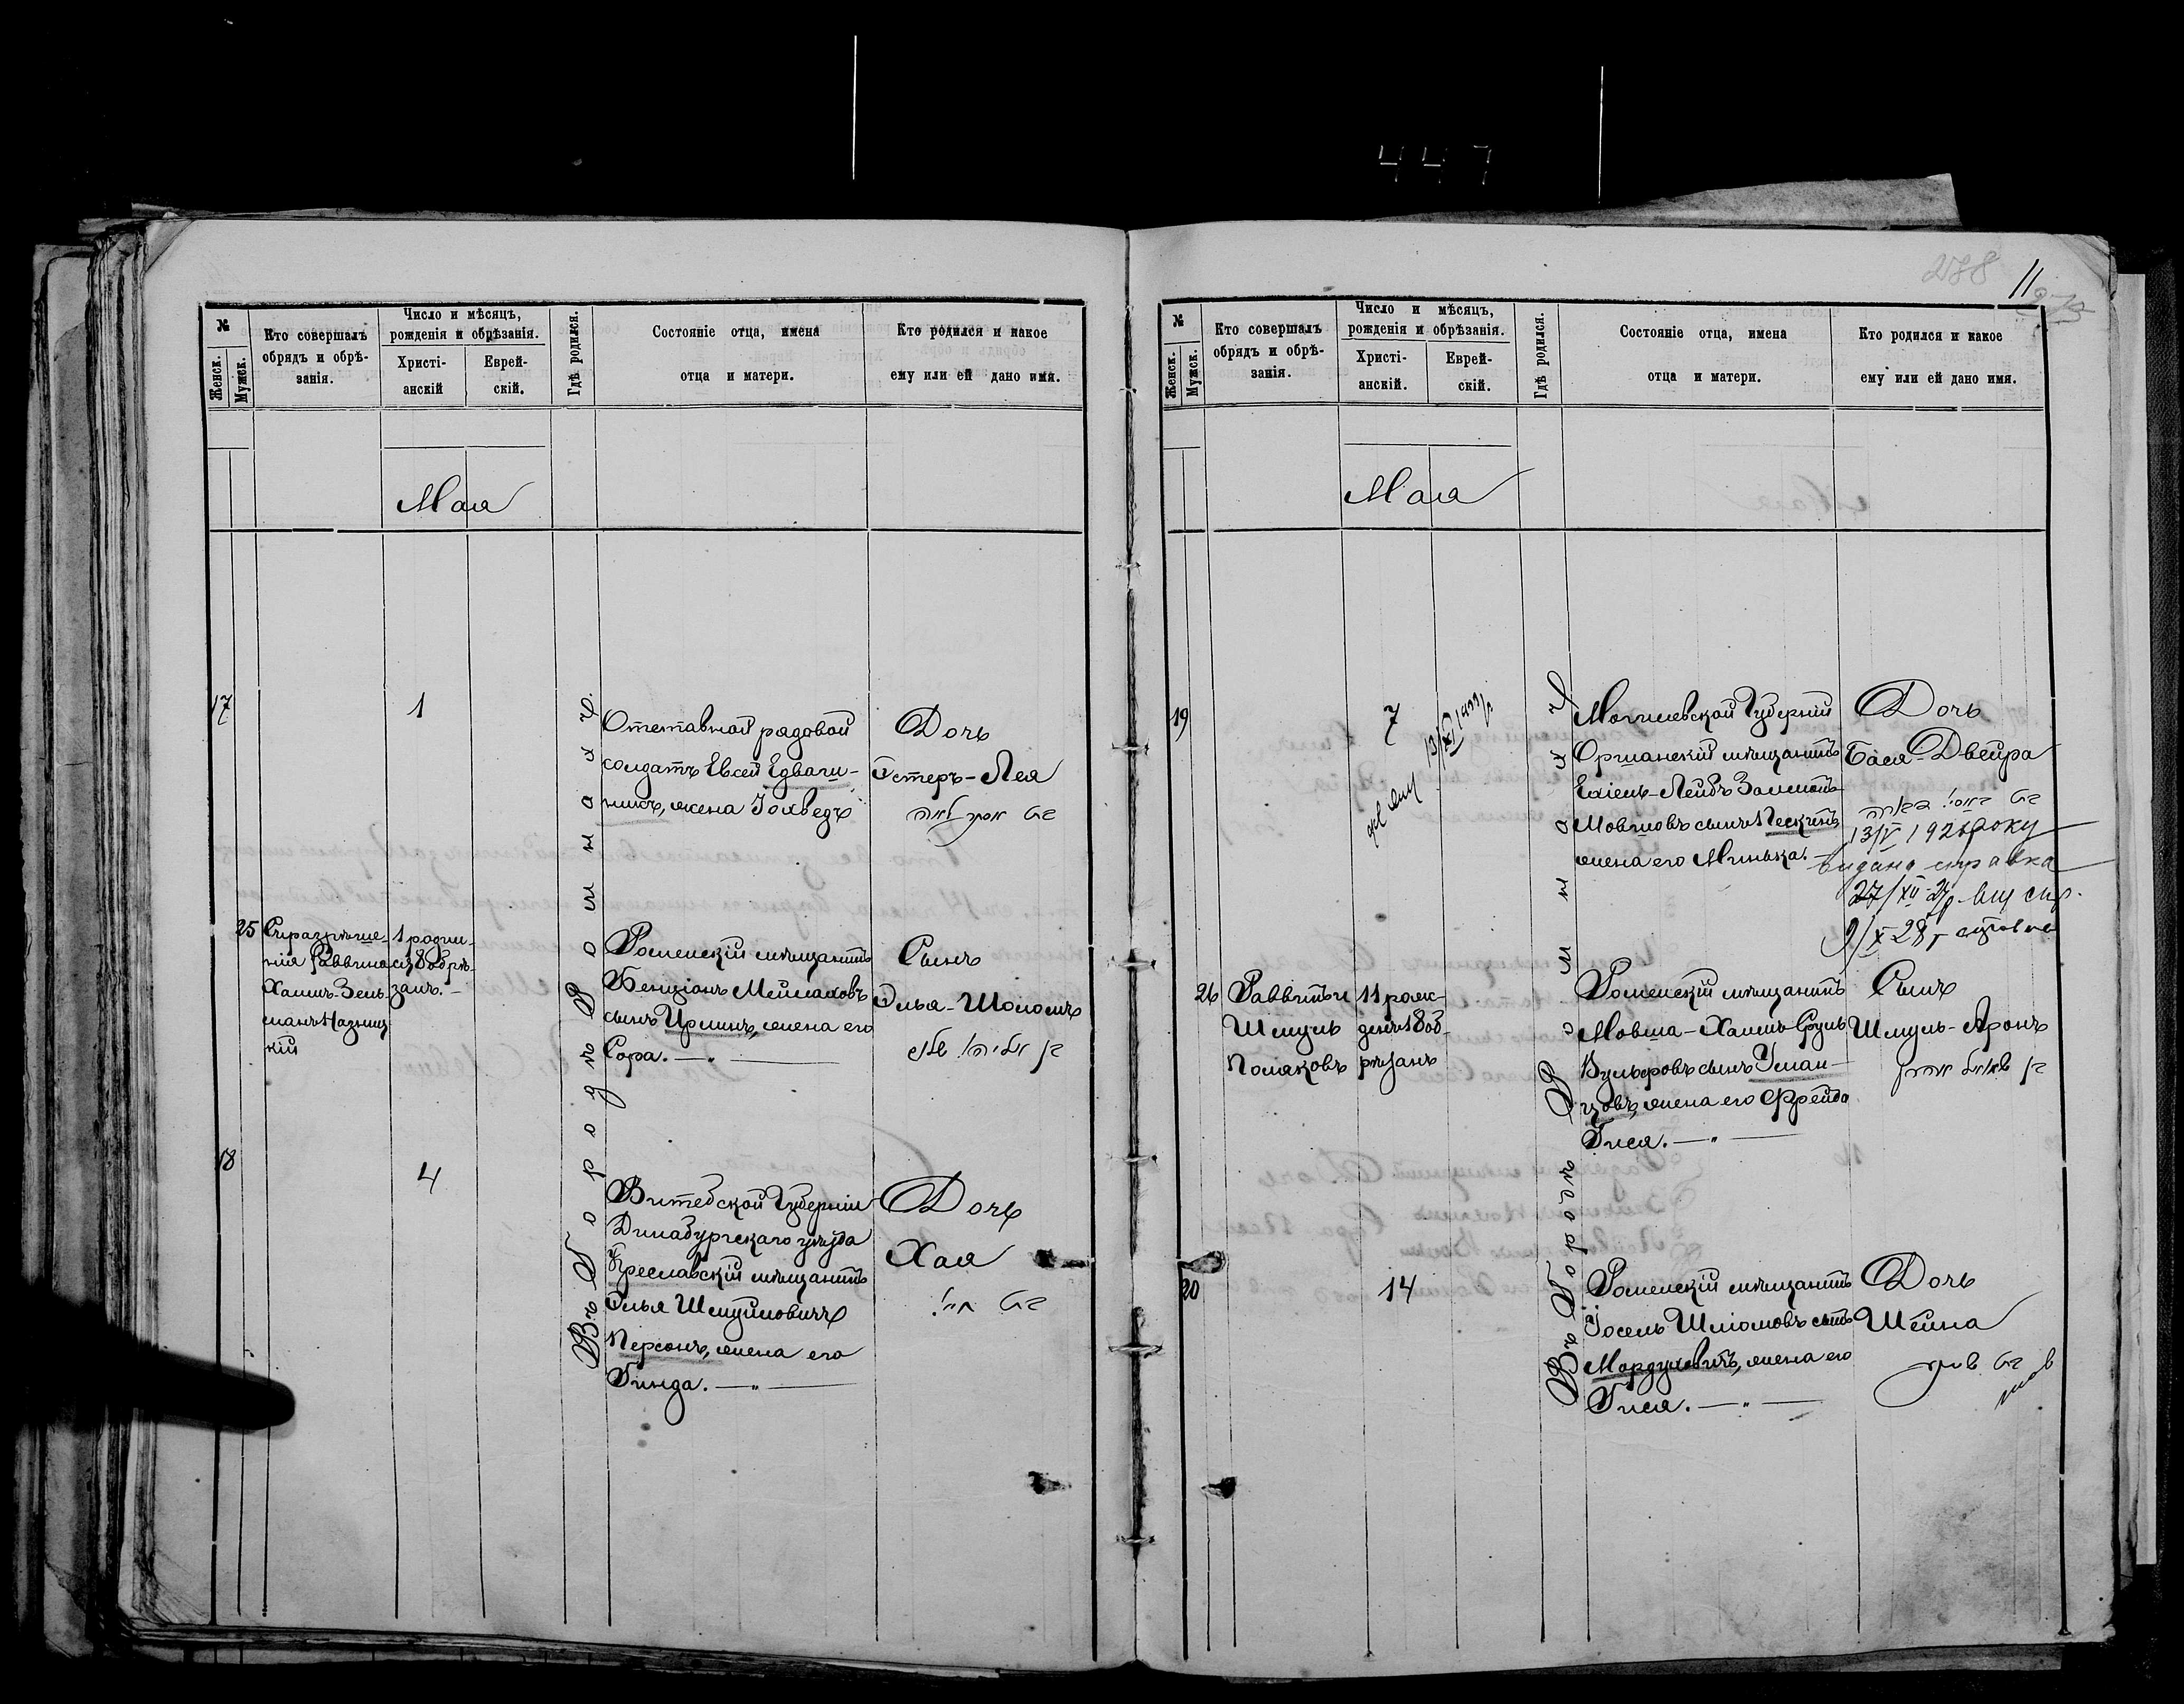 447
288
11
№
Женск.
Мужск.
Кто совершалъ
обрядъ и обрѣ-
занія.
Число и мѣсяцъ,
рожденія и обрѣзанія.
Христі-
анскій
Еврей-
скій.
Гдѣ родился.
Состояніе отца, имена
отца и матери.
Кто родился и какое
ему или ей дано имя.
Мая
Въ Городѣ Ромнахъ.
17
1
Отставной рядовой
солдатъ Евсей Едваги-
никъ, жена Іохведъ
Дочь
Эстеръ-Лея
בת אסתר לאה
25
Съ разрѣше-
нія Раввина
Хаимъ-Зель-
манъ
кій
1 родил-
ся 8 обрѣ-
занъ.
Роменскій мѣщанинъ
Бенціонъ Меймаховъ
сынъ Ирлинъ, жена его
Сора.
Сынъ
Элья-Шоломъ
בן אליהו שלום
18
4
Витебской Губерніи
Динабургскаго уѣзда
Креславскій мѣщанинъ
Элья Шмуйловичъ
Персонъ, жена его
Гинда.
Дочь
Хая
בת חי'
№
Женск.
Мужск.
Кто совершалъ
обрядъ и обрѣ-
занія.
Число и мѣсяцъ,
рожденія и обрѣзанія.
Христі-
анскій.
Еврей-
скій.
Гдѣ родился.
Состояніе отца, имена
отца и матери.
Кто родился и какое
ему или ей дано имя.
Мая
Въ Городѣ Ромнахъ
19
7
Могилевской Губерніи
Оршанскій мѣщанинъ
Ехіель-Лейбъ Залмонъ
Мовшовъ сынъ Пескинъ
жена его Минька.
Дочь
Бася-Двейра
בת באסי' דבארה
13/V 1926 року
видано справка
27/XII-27р. вид спр.
9/X 28 г справка
26
Раввинъ
Шмуль
Поляковъ
11 рож-
денъ 18 об-
рѣзанъ
Роменскій мѣщанинъ
Мовша-Хаимъ-Сруль
Вульфовъ сынъ Уман-
цовъ, жена его Фрейда
Гися.
Сынъ
Шмуль-Аронъ
בן שמואל אהרן
20
14
Роменскій мѣщанинъ
Іосель Шліомовъ сынъ
Мордуховичъ, жена его
Гися.
Дочь
Шейна
בת שיינה